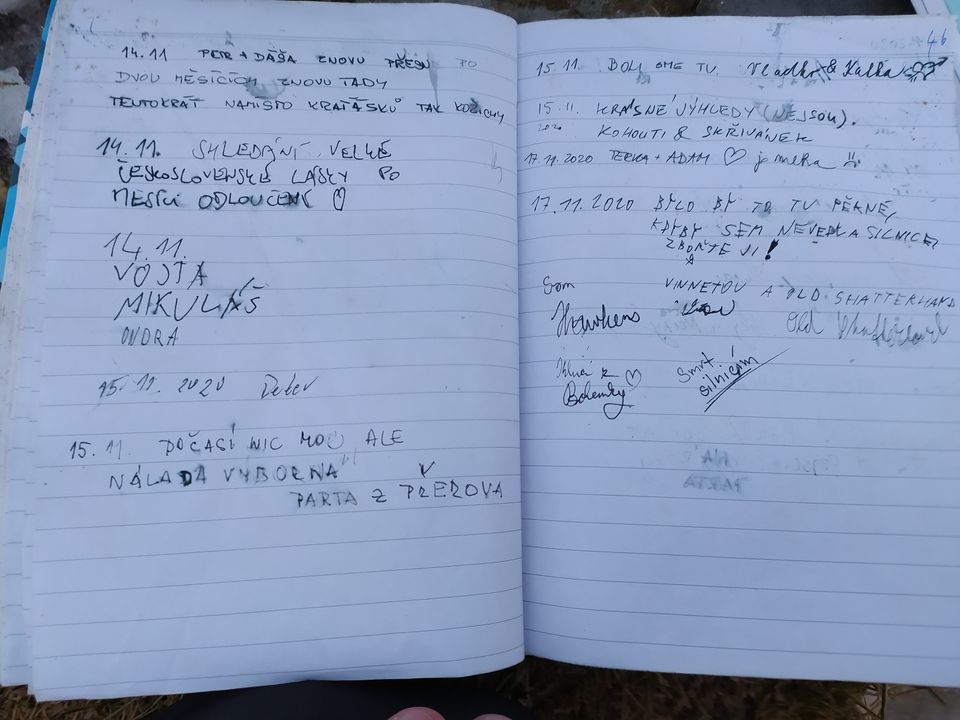 14.11 PETR + DÁŠA ZNOVU PŘESN PO
DVOU MĚSÍCÍCH ZNOVU TADY
TENTOKRÁT NAMÍSTO KRAŤÁSKŮ TAK KOŽICHY
14.11. SHLEDÁNÍ VELKÉ
ČESKOSLOVENSKÉ LÁSKY PO
MĚSÍCI ODLOUČENÍ ♡
14.11.
VOJTA
MIKULÁŠ
ONDRA
15.11.2020
15.11. POČASÍ NIC MOC ALE
NÁLADA VÝBORNÁ
PARTA Z PŘEROVA
46
15.11. BOLI SME TU. Vladko & Katka
15.11. KRÁSNÉ VÝHLEDY (NEJSOU).
2020 KOHOUTI & SKŘIVÁNEK
17.11.2020 TERKA + ADAM ♡ je mlha
17.11.2020 BYLO BY TO TU PĚKNÉ,
KDYBY SEM NEVEDLA SILNICE,
ZBOŘTE JI!
Sam VINNETOU A OLD SHATTERHAND
Hawkens Old Shatterhand
z ♡ Smrt
silnicím